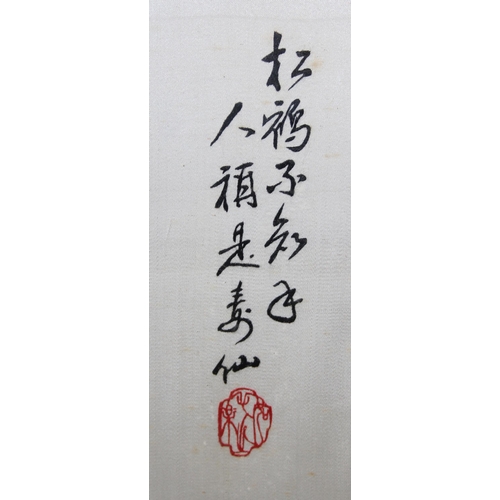 松鶴不知年
人是寿仙